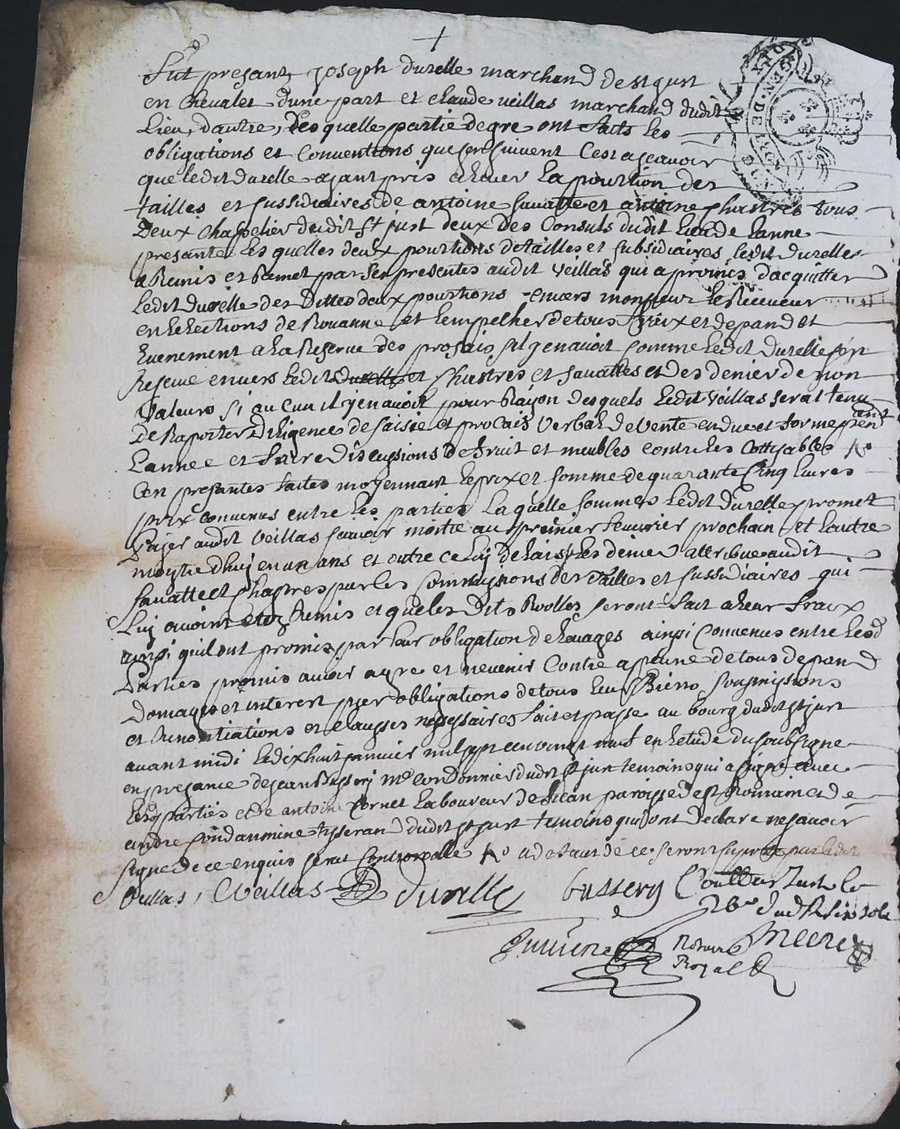 +
Fut presant Joseph durelle marchand de st Just
en Chevalet dune part et claude veillas marchand dudit
Lieu, dautre, Lesquelle partie de gre ont faits les
obligations et Conventions que sensuivent Cest ascavoir
que ledit durelle ajant pris a lever la pourtion des
tailles et sussidiaires de antoine favatte et antoine Chastres tous
Deux Chapelier dudit St just deux des Consuls dudit lieu de Lanne
presante les quelles deux pourtions de tailles et subsidiaires ledit durelles
a Remis et Remet par ses presentes audit veillas qui a promes dacquitter
ledit durelle des dittes deux pourtions envers monsieur le Receveur
en lelections de Rouanne et lempecher de tous fraix et depand et
Evenement a la Reserve des profais sil gen avoit comme ledit durelle sen
Reserve envers ledit durelle et Chastres et favattes et des denier de non
Valeurs si aucun il yen avoit pour Rayon desquels ledit veillas serat tenu
De Raporter diligence de saisie et procais verbal de vente en due et forme pendant
Lannee et faire discussions de fruit et meubles contre les Cottisables
Cen presantes faites moyennant le prix et somme de quarante Cinq livres
prix convenus entre les parties Laquelle somme ledit durelle promet
payer audit veillas savoir moitie au premier fevrier prochain et lautre
moytie dhuy en un ans et outre ce luy delaisse les denier attribue audit
favatte et Chastres par les Commissions des tailles et sussidiaires qui
Luy avoint etes Remis et que les dits Rolles seront fait a leur fraix
ainsi quil ont promis par leur obligation de lovages ainsi Convenus entre lesd
Parties promis avoir agre et ne venir Contre a peine de tous depand
Domages et interest par obligations de tous leur Biens sousmissions
et Renontiations et clausses nessessaires fait et passe au bourg dudit st just
avant midi le dix huit janvier mil sept cent vingt neuf en letude du soubsigne
en presance de jean Bussery me Cordonnier dudit st just temoins qui a signe avec
lesd parties et de antoine Cornet laboureur de paroisse de st Romain et de
andre fondanmine tisserand dudit st just temoins qui ont declare ne savoir
signe de ce enquis serat Controrolle a defaut de ce seront par ledit
veillas, Veillas durelle bussery Controlle a st Just le
Notaire
Royal